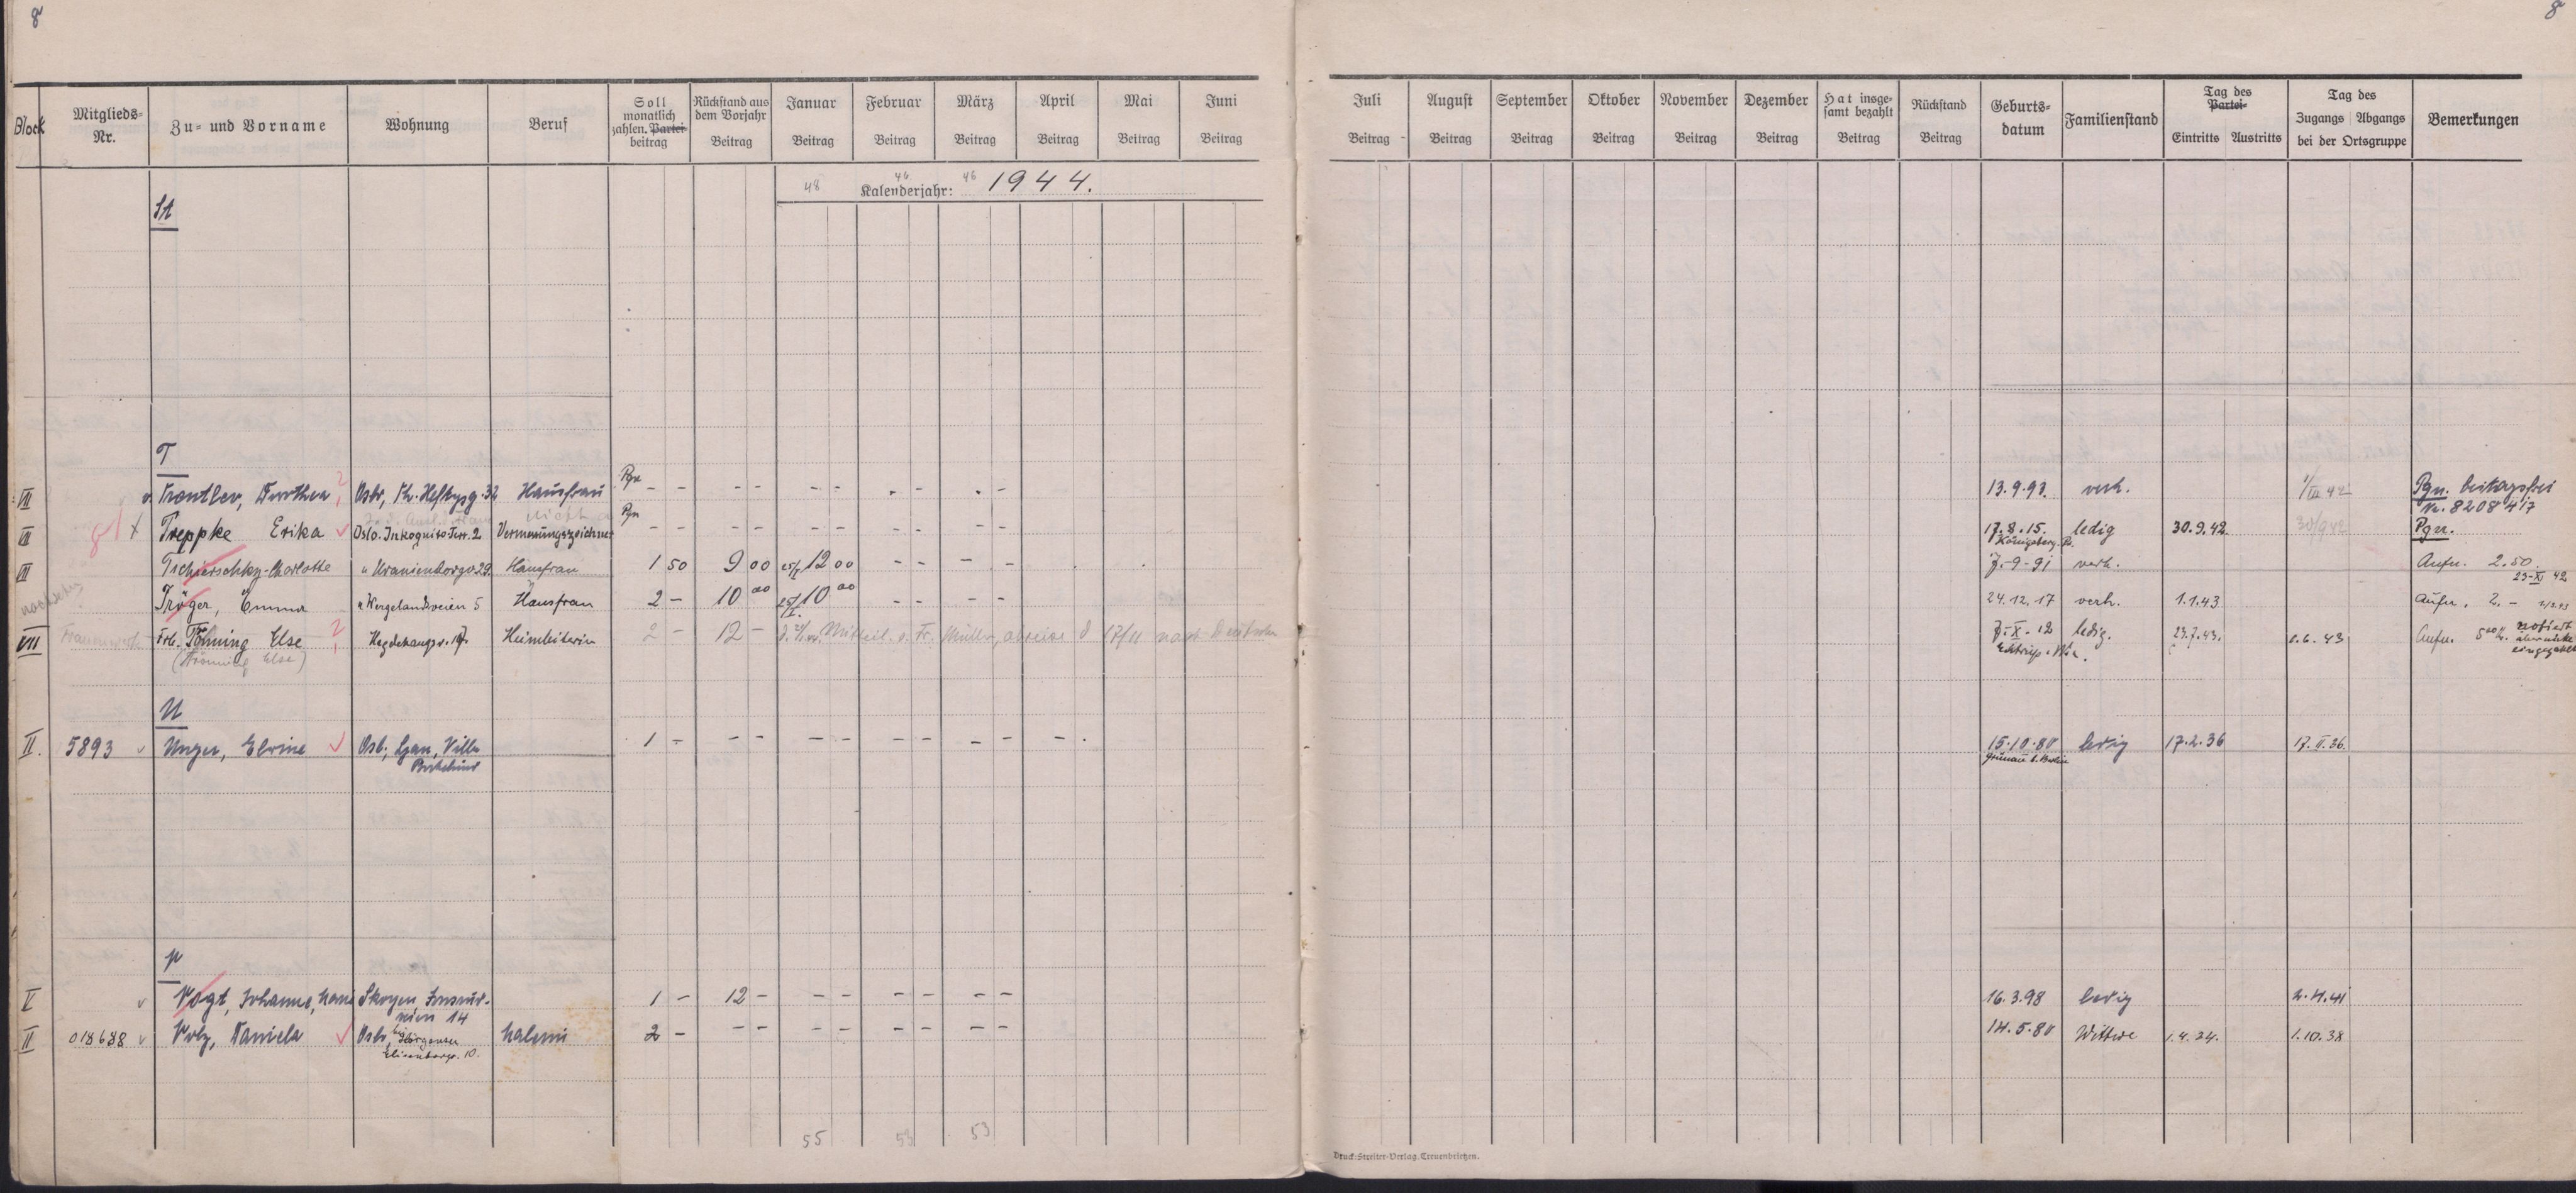 8
8
Block
Mitglieds-Nr.
Zu- und Vorname
Wohnung
Beruf
Soll monatlich zahlen. Partei-beitrag
Rückstand aus dem Vorjahr Beitrag
Januar Beitrag
Februar Beitrag
März Beitrag
April Beitrag
Mai Beitrag
Juni Beitrag
Juli Beitrag
August Beitrag
September Beitrag
Oktober Beitrag
November Beitrag
Dezember Beitrag
Hat insgesamt bezahlt Beitrag
Rückstand Beitrag
Geburts-datum
Familienstand
Tag des Partei- Eintritts Austritts
Tag des Zugangs Abgangs bei der Ortsgruppe
Bemerkungen
48 46 46
Kalenderjahr: 1944.
St
T
VII Dorothea Oslo, Th. Heftysg. 32 Hausfrau Pgn - - - - - - - - - - 13.9.93. verh. Pgn. beitragsfrei
Nr. 8208417
VII Treppke Erika Oslo. Inkognito-Terr. 2 Pgn - - - - - - - - - - 17.8.15. ledig 30.9.42 30/9 42 Pgn.
Königsberg. Pr.
VII Tschierschky-Charlotte " Uranienborgv 29. Hausfrau 1 50 9 00 25/I 12 00 - - - - 7-9-91 verh. Aufn. 2.50.
23-XI 42
Tröger, Emma " Wergelandsveien 5 Hausfrau 2 - 10 00 25/I 10 00 - - - - 24.12.17 verh. 1.1.43 Aufn. 2.-
VII Frl. Tönning Else Hegdehaugsv. Heimleiterin 2 - 12 - Mitteil. v. Fr. Müller, abreise 17/11 nach 7-X-12 ledig. 23.7.43. 2.6.43 Aufn. notiert
(Else)
U
II. 5893 Unger, Elvine Osl., Ljan, Villa 1 - - - - - - - - - - - 15.10.80 ledig 17.2.36 17.II.36.
Grünau b. Berlin
V
V Vogt, Johanna, Skoyen 1 - 12 - - - - - - - 16.3.98 ledig 2.4.41
14
II 018638 Volz, Daniela Oslo, Malerin 2 - - - - - - - - - 14.5.80 Wittwe 1.4.34. 1.10.38
10.
55 53 53
Druck: Streiter-Verlag. Treuenbrietzen.